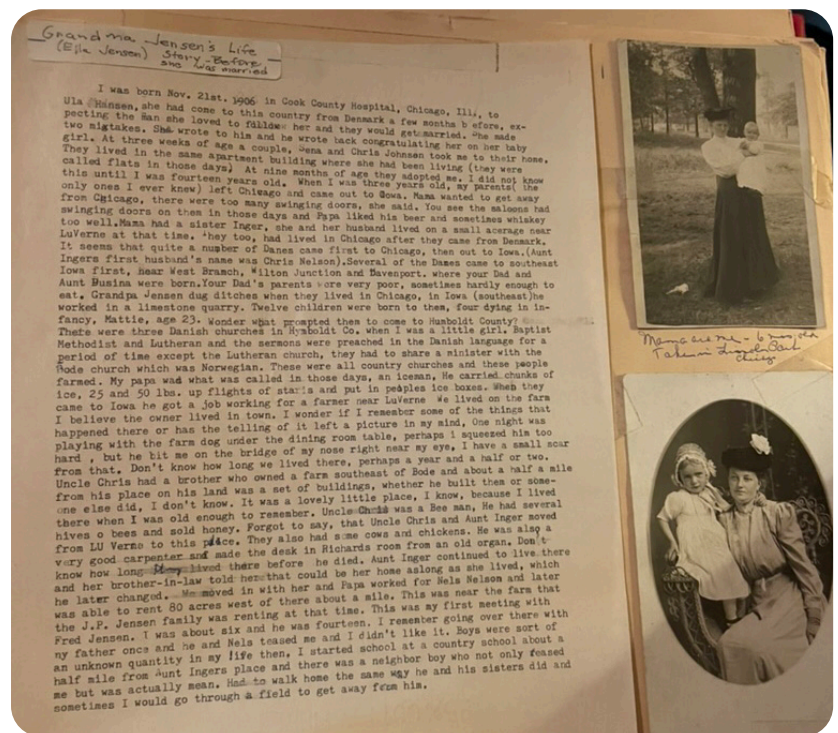 Grandma Jensen's Life
(Ella Jensen) Story - Before
she was married
I was born Nov. 21st. 1906 in Cook County Hospital, Chicago, Ill., to
Ula Hansen, she had come to this country from Denmark a few months b efore, ex-
pecting the man she loved to follow her and they would get married. She made
two mistakes. She wrote to him and he wrote back congratulating her on her baby
girl. At three weeks of age a couple, Sena and Chris Johnson took me to their home.
They lived in the same apartment building where she had been living (they were
called flats in those days) At nine months of age they adopted me. I did not know
this until I was fourteen years old. When I was three years old, my parents( the
only ones I ever knew) left Chicago and came out to Iowa. Mama wanted to get away
from Chicago, there were too many swinging doors, she said. You see the saloons had
swinging doors on them in those days and Papa liked his beer and sometimes whiskey
too well.Mama had a sister Inger, she and her husband lived on a small acerage near
LuVerne at that time. They too, had lived in Chicago after they came from Denmark.
It seems that quite a number of Danes came first to Chicago, then out to Iowa.(Aunt
Ingers first husband's name was Chris Nelson).Several of the Danes came to southeast
Iowa first, near West Branch, Wilton Junction and Davenport. where your Dad and
Aunt Dusina were born.Your Dad's parents were very poor, sometimes hardly enough to
eat. Grandpa Jensen dug ditches when they lived in Chicago, in Iowa (southeast)he
worked in a limestone quarry. Twelve children were born to them, four dying in in-
fancy, Mattie, age 23. Wonder what prompted them to come to Humboldt County?
There were three Danish churches in Humboldt Co. when I was a little girl. Baptist
Methodist and Lutheran and the sermons were preached in the Danish language for a
period of time except the Lutheran church, they had to share a minister with the
Bode church which was Norwegian. These were all country churches and these people
farmed. My papa was what was called in those days, an iceman, He carried chunks of
ice, 25 and 50 lbs. up flights of stairs and put in peoples ice boxes. When they
came to Iowa he got a job working for a farmer near LuVerne We lived on the farm
I believe the owner lived in town. I wonder if I remember some of the things that
happened there or has the telling of it left a picture in my mind, One night was
playing with the farm dog under the dining room table, perhaps i squeezed him too
hard , but he bit me on the bridge of my nose right near my eye, I have a small scar
from that. Don't know how long we lived there, perhaps a year and a half or two.
Uncle Chris had a brother who owned a farm southeast of Bode and about a half a mile
from his place on his land was a set of buildings, whether he built them or some-
one else did, I don't know. It was a lovely little place, I know, because I lived
there when I was old enough to remember. Uncle Chris was a Bee man, He had several
hives o bees and sold honey. Forgot to say, that Uncle Chris and Aunt Inger moved
from LU Verne to this place. They also had some cows and chickens. He was also a
very good carpenter and made the desk in Richards room from an old organ. Don't
know how long they lived there before he died. Aunt Inger continued to live there
and her brother-in-law told her that could be her home aslong as she lived, which
he later changed. We moved in with her and Papa worked for Nels Nelson and later
was able to rent 80 acres west of there about a mile. This was near the farm that
the J.P. Jensen family was renting at that time. This was my first meeting with
Fred Jensen. I was about six and he was fourteen. I remember going over there with
my father once and he and Nels teased me and I didn't like it. Boys were sort of
an unknown quantity in my life then. I started school at a country school about a
half mile from Aunt Ingers place and there was a neighbor boy who not only teased
me but was actually mean. Had to walk home the same way he and his sisters did and
sometimes I would go through a field to get away from him.
Mama and me - 6 mos. old
Taken in Lincoln Park
Chicago